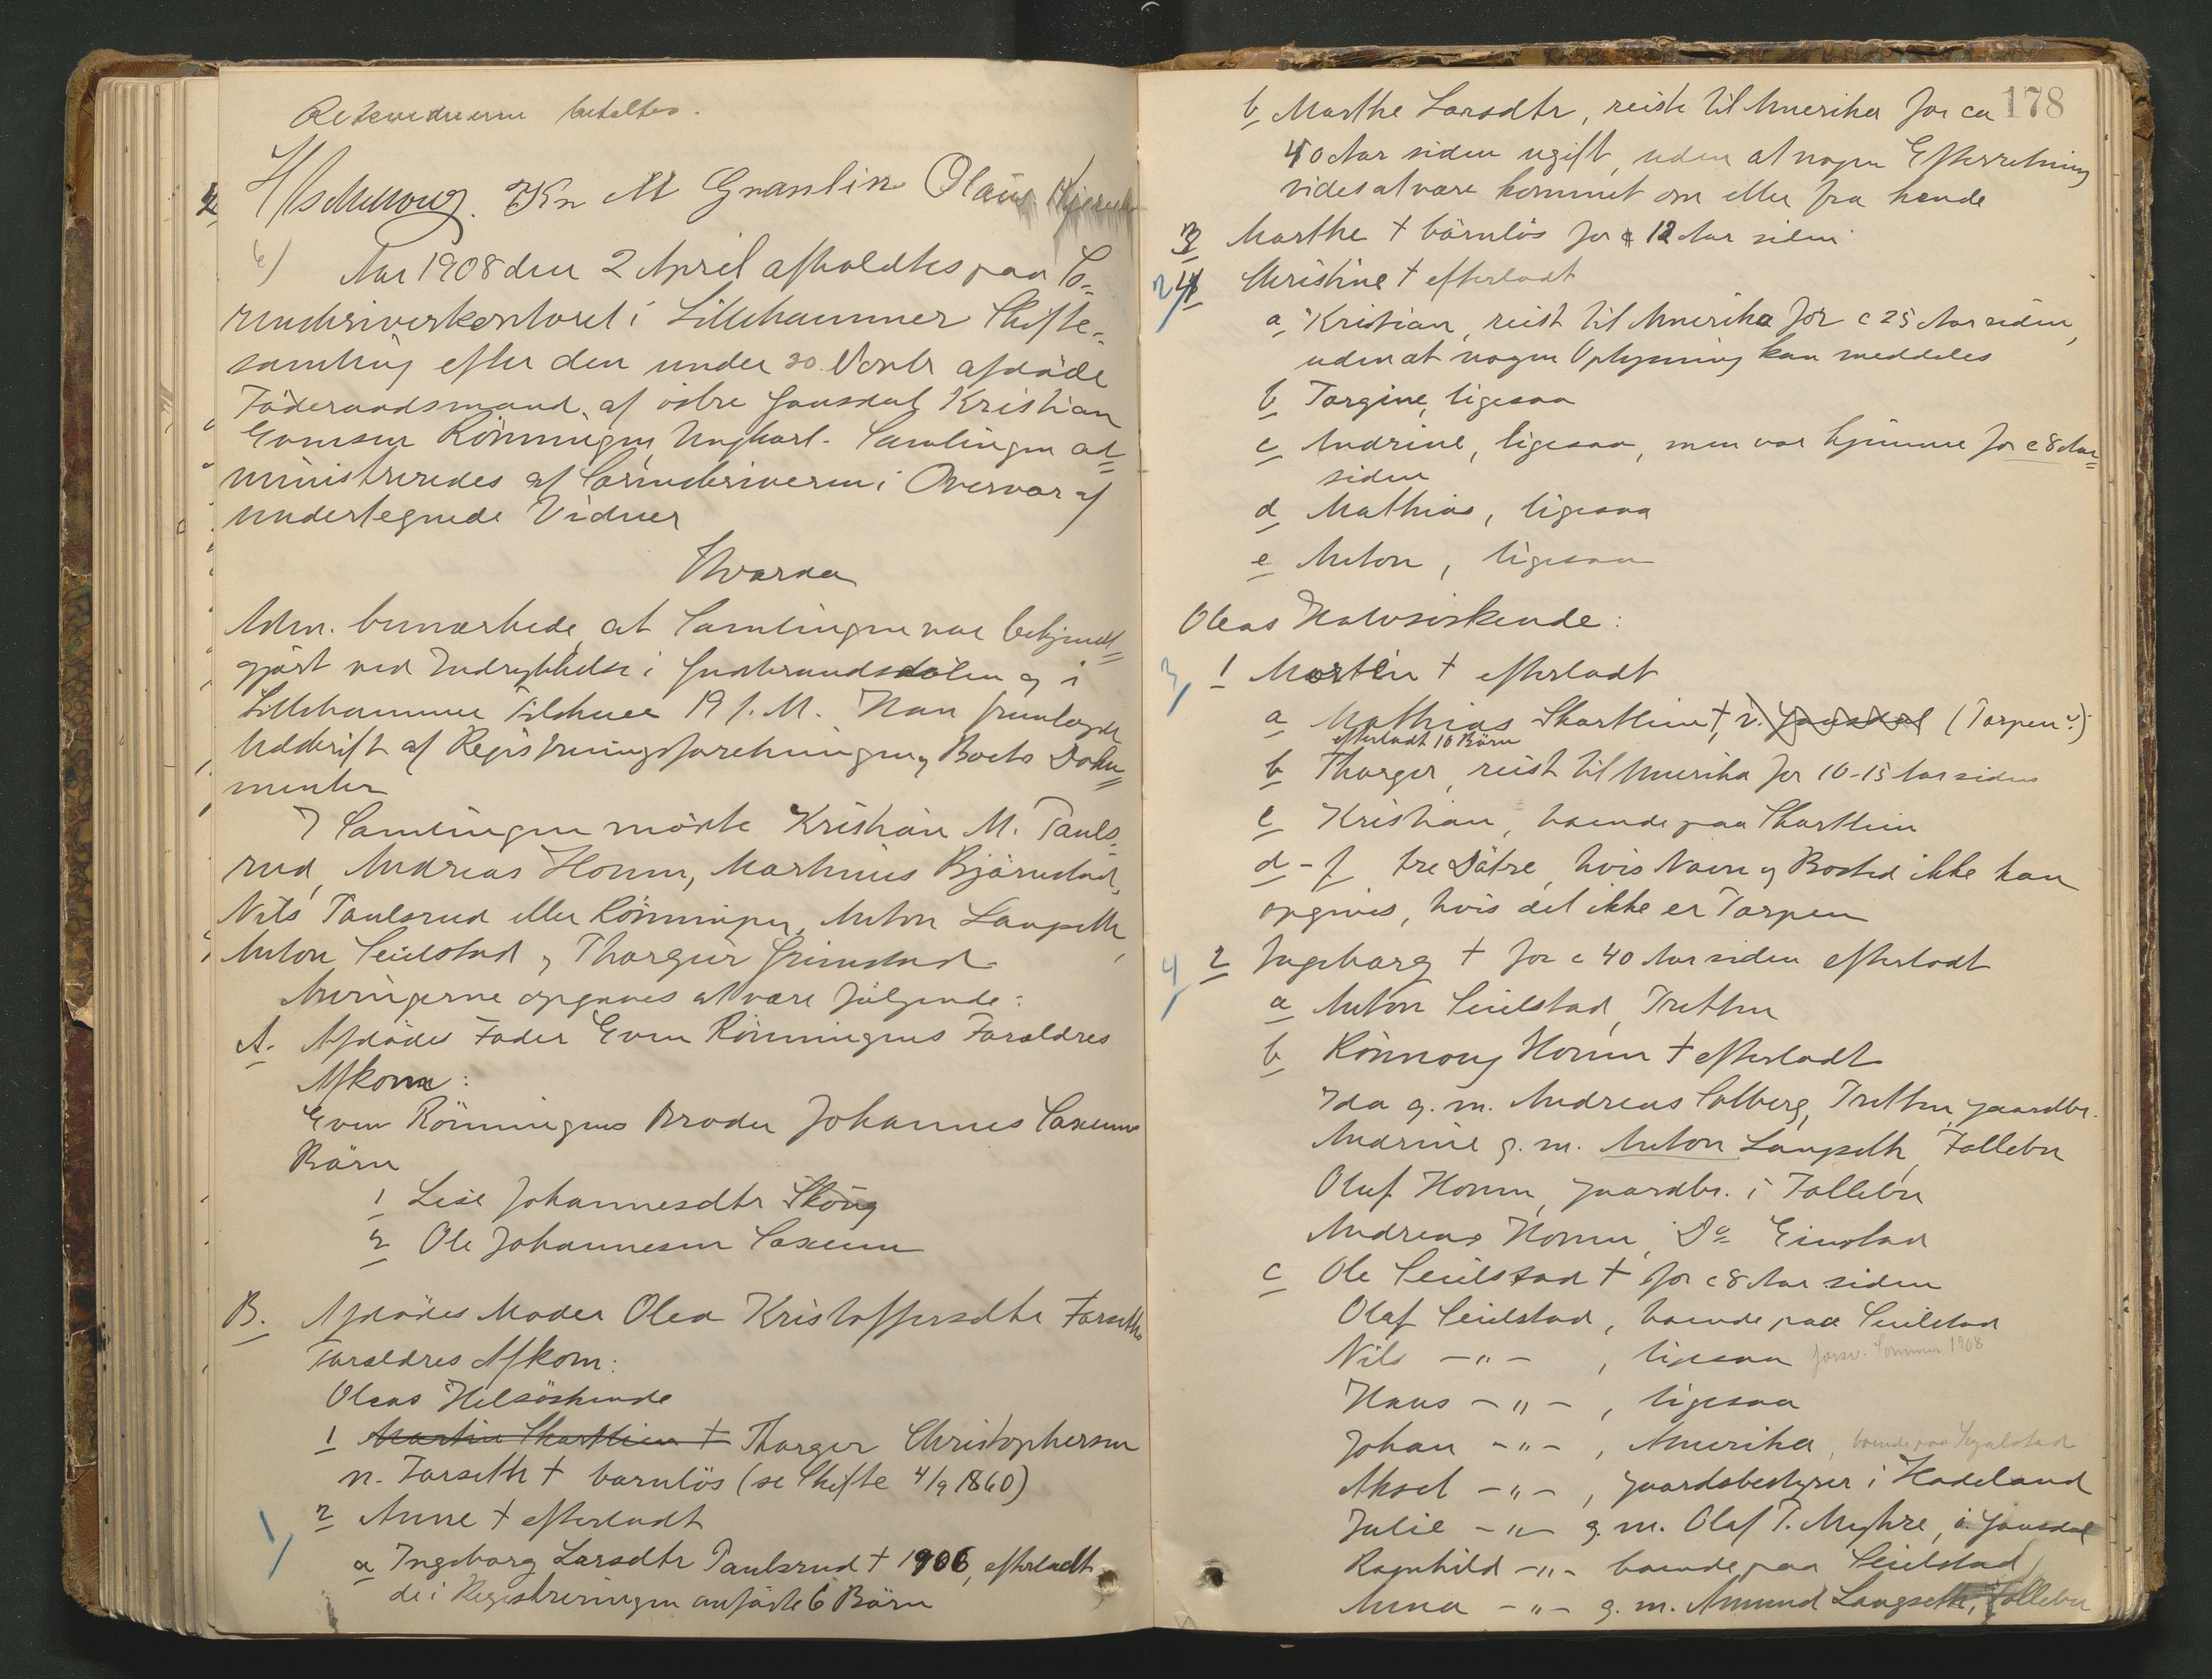 betaltes.
Kr M Granlien Olaus
Aar 1908 den 2 April afholdtes paa So=
renskriverkontoret i Lillehammer Skifte=
samling efter den under 30. Novbr afdöde
Föderaadsmand af östre Gausdal Kristian
Evensen Rönningen, Ungkarl. Samlingen ad=
ministreredes af Sorenskriveren i Overvær af
undertegnede Vidner
Hvorda
Adm. bemærkede at Samlingen var bekjendt=
gjort ved Indrykkelse i Gudbrandsdölen og i
Lillehammer Tilskuer 19 f. M. Han fremlagde
Udskrift af Registreringsforretningen og Boets Doku=
menter
I Samlingen mödte Kristian M. Pauls=
rud, Andreas Honn, Marthinus Björnstad,
Nils Paulsrud eller Rönningen, Anton Langseth,
Anton Seielstad og Thorger Grimstad
Arvingerne opgaves at være fölgende:
A. Afdödes Fader Even Rönningens Forældres
Afkom:
Even Rönningens Broder Johannes Saxums
Börn
1 Lise Johannesdtr Skoug
2 Ole Johannesen Saxum
B. Afdödes Moder Olea Kristoffersdtr Forseths
Forældres Afkom:
Oleas Helsöskende
1 Martin Skartlien † Thorger Christophersen
n. Forseth † barnlös (se Skifte 4/9 1860)
2 Anne † efterladt
a Ingeborg Larsdtr Paulsrud † 1906, efterladt
de i Registreringen anförte 6 Börn
178
b Marthe Larsdtr, reiste til Amerika for ca
40 Aar siden ugift, uden at nogen Efterretning
vides at være kommet om eller fra hende
3 Marthe † barnlös for 12 Aar siden
2 4 Christine † efterladt
a Kristian, reist til Amerika for c 25 Aar siden,
uden at nogen Oplysning kan meddeles
b Torgine, ligesaa
c Andrine, ligesaa, men var hjemme for c 8 Aar
siden
d Mathias, ligesaa
e Anton, ligesaa
Oleas Halvsöskende:
3 1 Martin † efterladt
a Mathias Skartlien †, i Gausdal (Torpen?)
efterladt 10 Börn
b Thorger, reist til Amerika for 10-15 Aar siden
c Kristian, boende paa Skartlien
d - f tre Dötre, hvis Navn og Bosted ikke kan
opgives, hvis det ikke er Torpen
4 2 Ingeborg † for c 40 Aar siden efterladt
a Anton Seielstad, Tretten
b Rönnoug Honn † efterladt
Ida g. m. Andreas Solberg, Tretten, gaardbr.
Andrine g. m. Anton Langseth, Follebu
Oluf Honn, gaardbr. i Follebu
Andreas Honn, Do Einstad
c Ole Seielstad † for c 8 Aar siden
Olaf Seielstad, boende paa Seielstad
Nils -"- , ligesaa Sommer 1908
Hans -"- , ligesaa
Johan -"- , Amerika, boende paa Segalstad
Aksel -"- , gaardsbestyrer i Hadeland
Julie -"- g. m. Olaf T. Myhre, i Gausdal
Ragnhild -"- boende paa Seielstad
Anna -"- g. m. Amund Langseth, Follebu